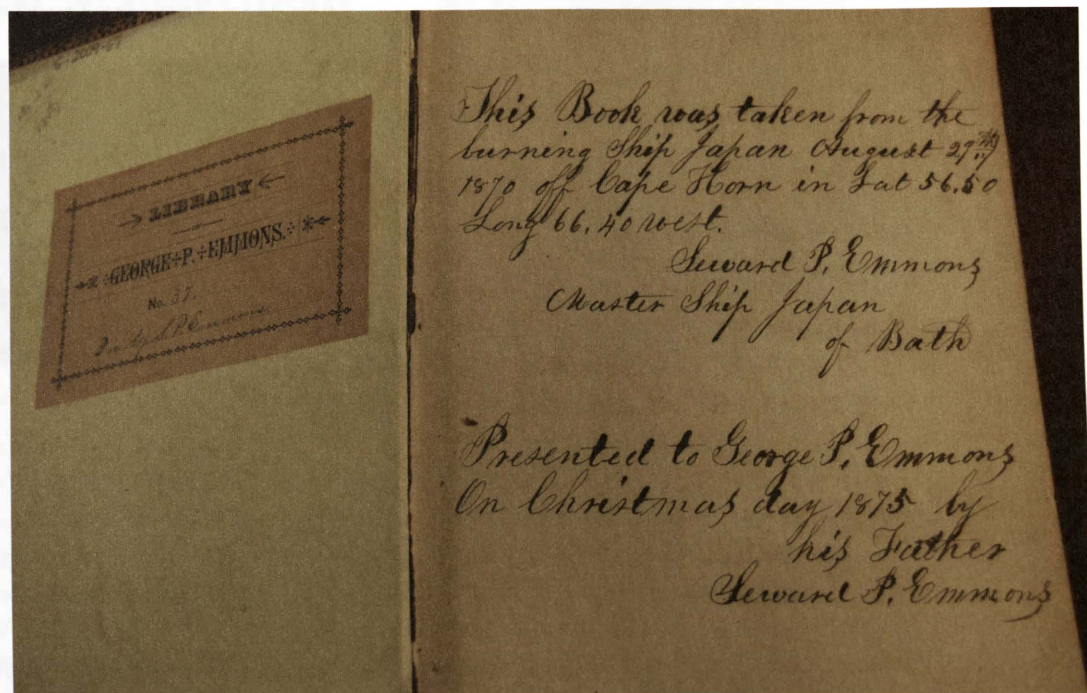 LIBRARY
GEORGE P. EMMONS.
No. 37.
S. P. Emmons.
This Book was taken from the
burning Ship Japan August 27th
1870 off Cape Horn in Lat 56.50
Long 66.40 west.
Seward P. Emmons
Master Ship Japan
of Bath
Presented to George P. Emmons
On Christmas day 1875 by
his Father
Seward P. Emmons